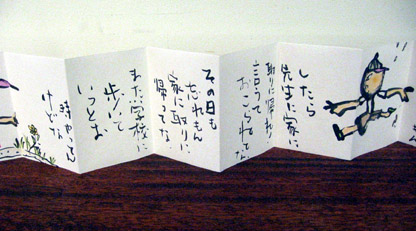 したら
先生に家に
取りに帰れ
言うて
おこられてな
その日も
忘れもん
家に取りに
帰ってな
また学校に
歩いて
いっとお
時やってん
けどな